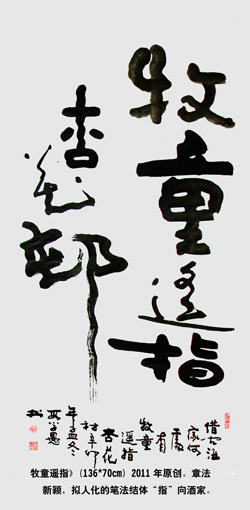 牧童遙指
杏花邨
借问酒
家何
處有
牧童
遥指
杏花
村辛卯
年孟冬
书
牧童遥指》(136*70cm) 2011 年原创。章法
新颖，拟人化的笔法结体“指”向酒家。